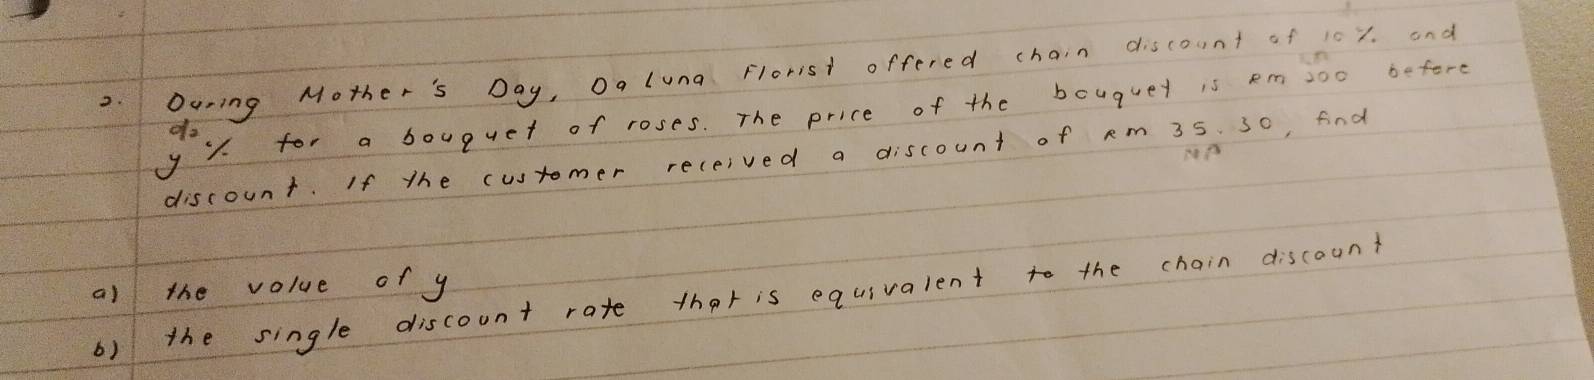 2. During Mother's Day, Da Luna Florist offered chain discount of 10% and
d2
y % for a bouquet of roses. The price of the bouquet is RM 200 before
discount. If the customer received a discount of RM 35.30, find
NP
a) the value of y
b) the single discount rate that is equivalent to the chain discount